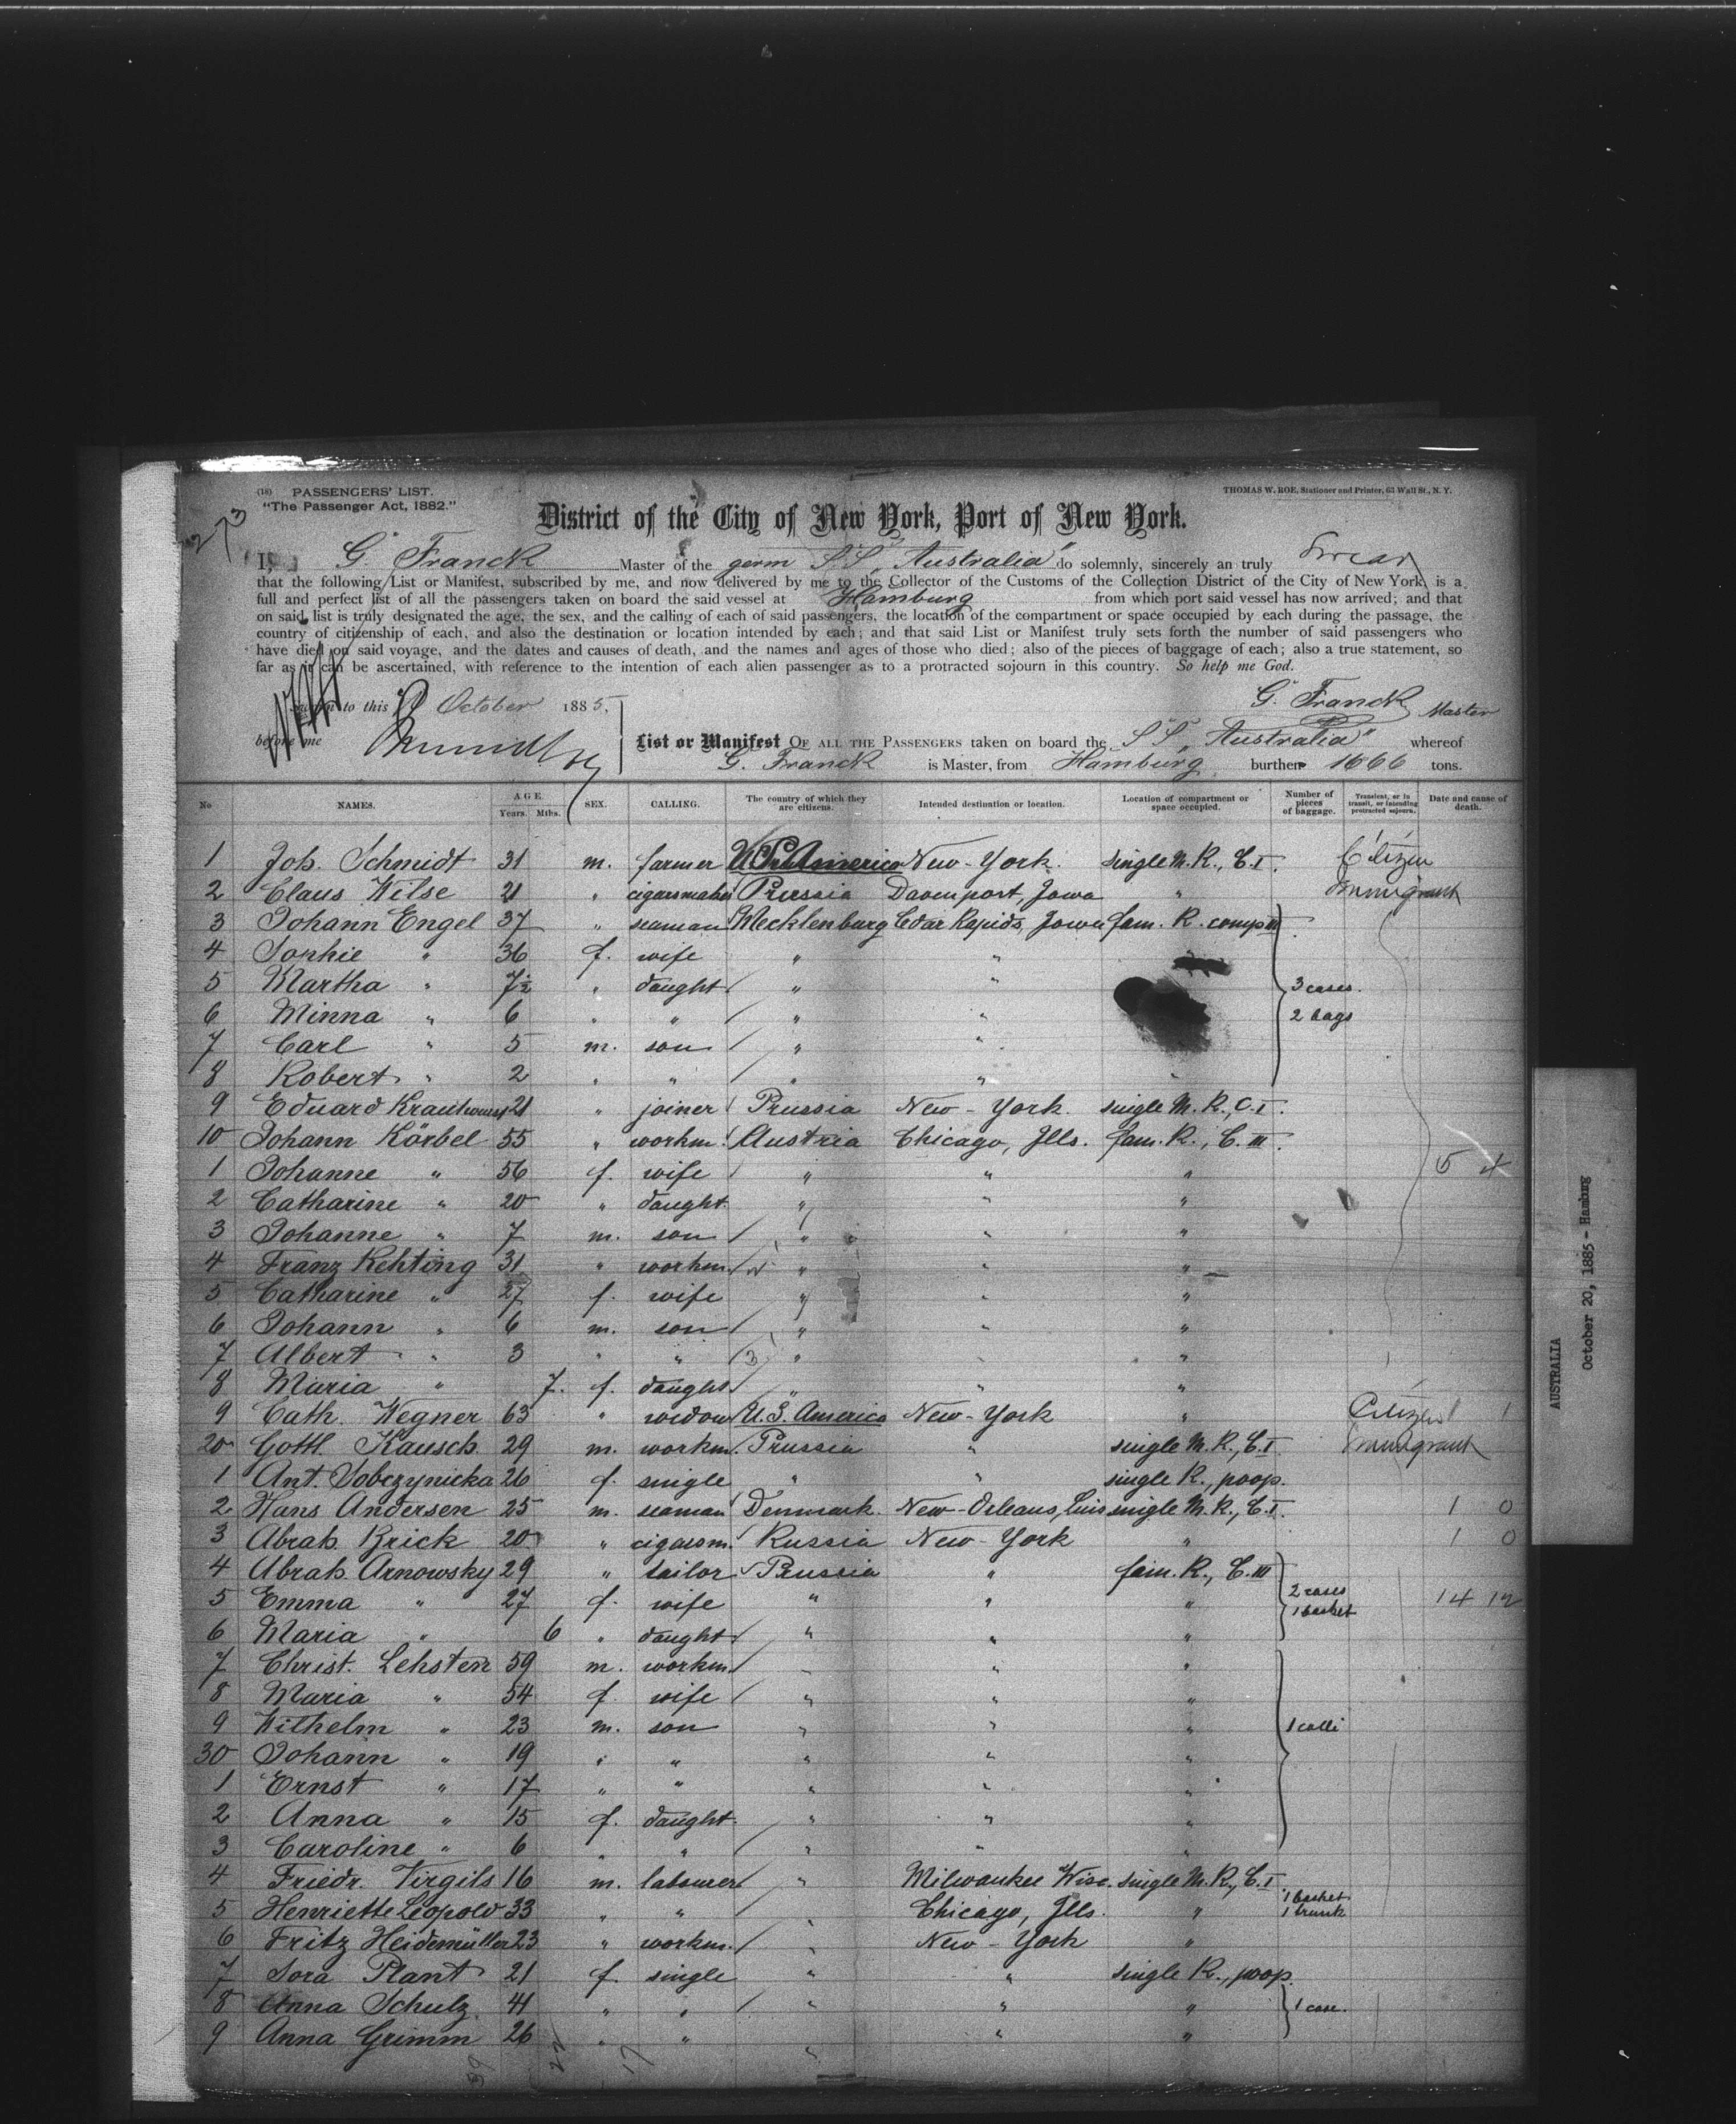 (18) PASSENGERS' LIST.
"The Passenger Act, 1882."
THOMAS W. ROE, Stationer and Printer, 63 Wall St., N. Y.
273
District of the City of New York, Port of New York.
I, G. Franck Master of the germ S.S. "Australia" do solemnly, sincerely an truly swear
that the following List or Manifest, subscribed by me, and now delivered by me to the Collector of the Customs of the Collection District of the City of New York, is a
full and perfect list of all the passengers taken on board the said vessel at Hamburg from which port said vessel has now arrived; and that
on said list is truly designated the age, the sex, and the calling of each of said passengers, the location of the compartment or space occupied by each during the passage, the
country of citizenship of each, and also the destination or location intended by each; and that said List or Manifest truly sets forth the number of said passengers who
have died on said voyage, and the dates and causes of death, and the names and ages of those who died; also of the pieces of baggage of each; also a true statement, so
far as it can be ascertained, with reference to the intention of each alien passenger as to a protracted sojourn in this country. So help me God.
to this October 1885,
G. Franck Master
before me
List or Manifest OF ALL THE PASSENGERS taken on board the S.S. "Australia" whereof
G. Franck is Master, from Hamburg burthen 1666 tons.
No NAMES. AGE. Years. Mths. SEX. CALLING. The country of which they are citizens. Intended destination or location. Location of compartment or space occupied. Number of pieces of baggage. Transient, or in transit, or intending protracted sojourn. Date and cause of death.
1 Joh. Schmidt 31 m. farmer U.S. America New-York. single M. R., C. I. Citizen
2 Claus Wilse 21 " cigarsmaker Prussia Davenport, Jowa " Immigrant
3 Johann Engel 37 " seaman Mecklenburg Cedar Rapids, Jowa fam. R. comp III
4 Sophie " 36 f. wife " "
5 Martha " 7½ " daught. " " 3 cases.
6 Minna " 6 " " " " 2 bags
7 Carl " 5 m. son " "
8 Robert " 2 " " " " "
9 Eduard 21 " joiner Prussia New-York. single M. R., C. I.
10 Johann Körbel 55 " workm. Austria Chicago, Jlls. fam. R., C. III.
1 Johanne " 56 f. wife " " " 5 4
2 Catharine " 20 " daught. " " "
3 Johanne " 7 m. son " " "
4 Franz Rehting 31 " workm. " " "
5 Catharine " 27 f. wife " " "
6 Johann " 6 m. son " " "
7 Albert " 3 " " 3 " " "
8 Maria " 7. f. daught. " " "
9 Cath. Wegner 63 " widow U.S. America New-York " Citizen 1
20 Gottl. Kausch 29 m. workm. Prussia " single M. R., C. I. Immigrant
1 Ant. Sobczynicka 26 f. single " " single R., poop.
2 Hans Andersen 25 m. seaman Denmark. New-Orleans, Luis single M. R., C. I. 1 0
3 Abrah. Krick 20 " cigarsm. Russia New-York " 1 0
4 Abrah. Arnowsky 29 " tailor Prussia " fam. R., C. III
5 Emma " 27 f. wife " " " 2 cases 1 basket 14 12
6 Maria " 6 " daught. " " "
7 Christ. Lehsten 59 m. workm. " " "
8 Maria " 54 f. wife " " "
9 Wilhelm " 23 m. son " " " 1 colli
30 Johann " 19 " " " " "
1 Ernst " 17 " " " " "
2 Anna " 15 f. daught. " " "
3 Caroline " 6 " " " " "
4 Friedr. Virgils 16 m. labourer " Milwaukee Wisc. single M. R., C. I.
5 Henriette Leopold 33 " " " Chicago, Jlls. " 1 basket 1 trunk
6 Fritz Heidemüller 23 " workm. " New-York "
7 Dora Plant 21 f. single " " single R., poop.
8 Anna Schulz 41 " " " " " 1 case.
9 Anna Grimm 26 " " " " "
39 22 17
AUSTRALIA
October 20, 1885 - Hamburg